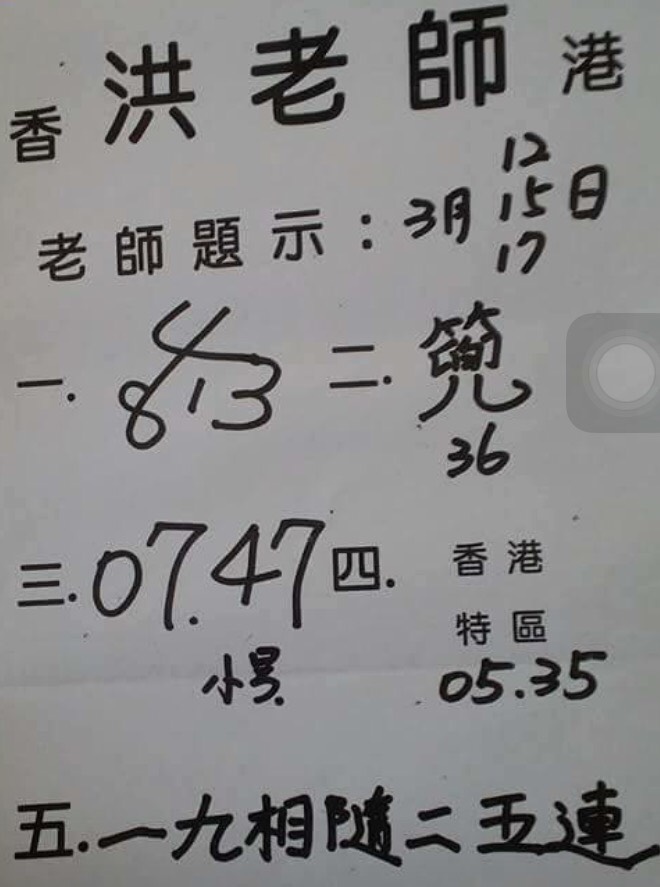 香洪老師港
老師題示：3月12 15 17日
一. 813
二.
36
三. 07.47
小号.
四. 香港
特區
05.35
五. 一九相隨二五連